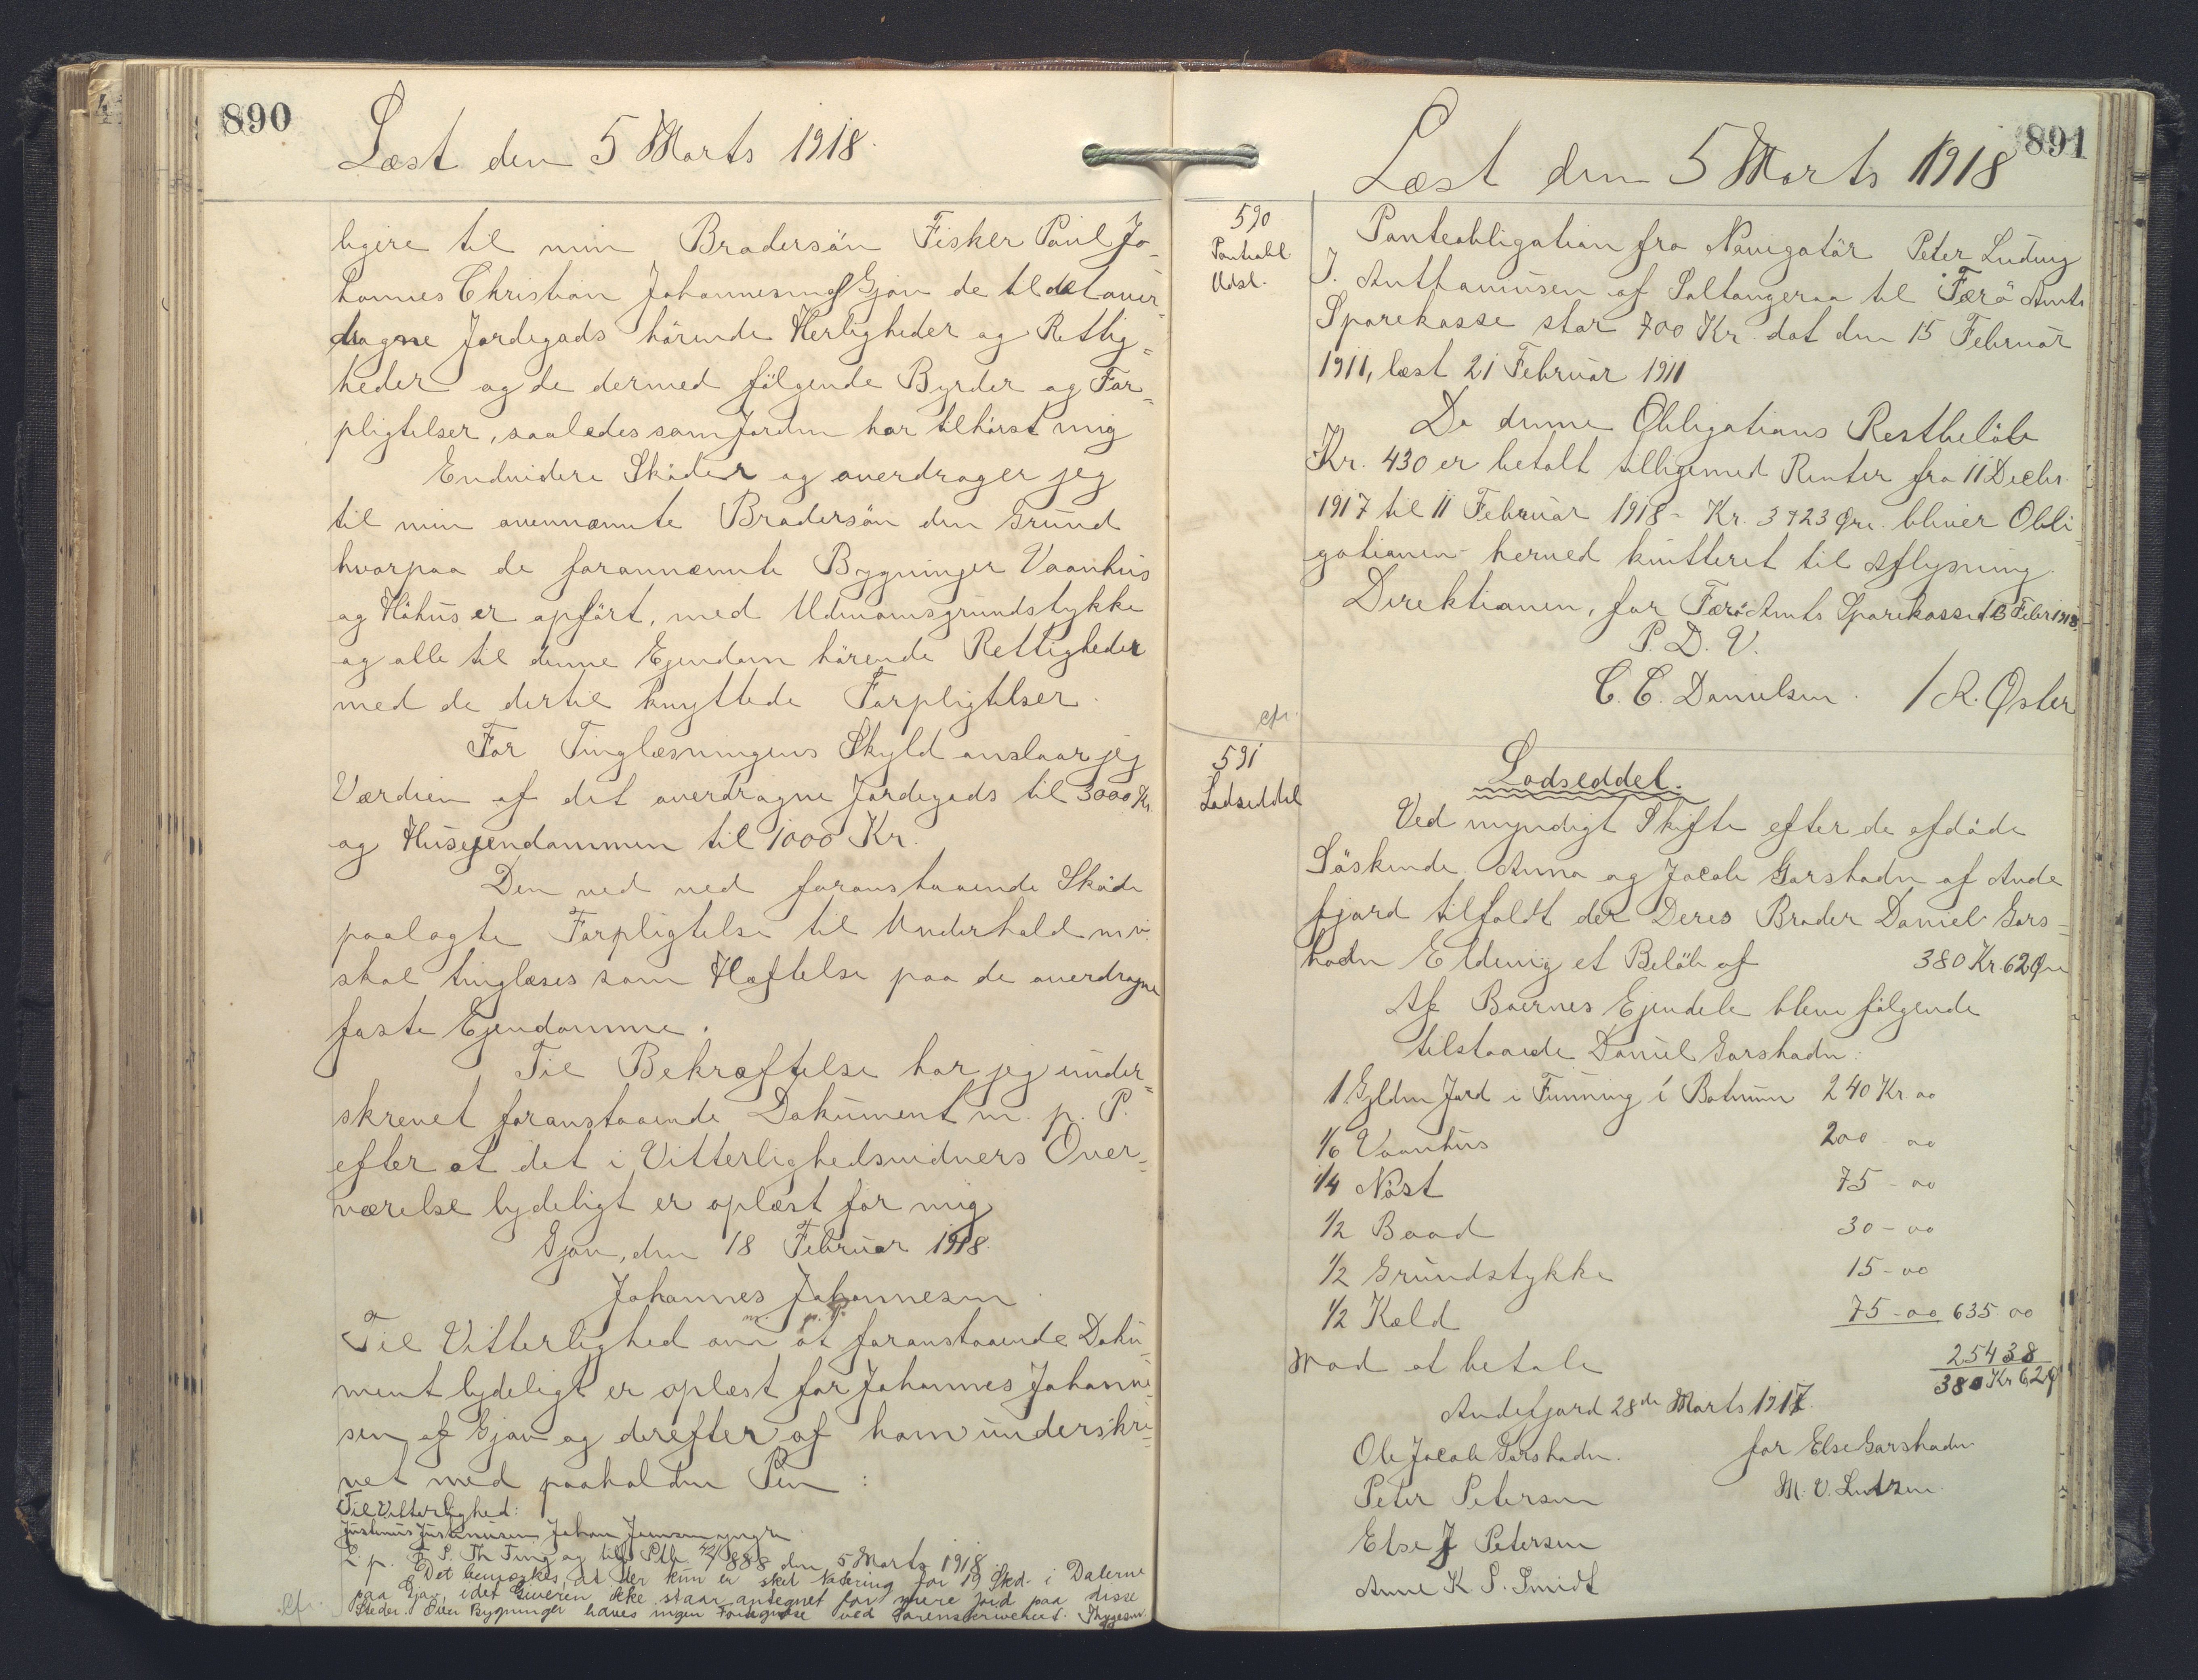 890
Læst den 5 Marts 1918.
ligere til min Brodersön Fisker Poul Jo-
hannes Christian Johannesen af Gjov de til det over-
dragne Jordegods hörende Herligheder og Rettig=
heder og de dermed fölgende Byrder og For=
pligtelser, saaledes som Jorden har tilhört mig
Endvidere Sköder og overdrager jeg
til min ovennævnte Brodersön den Grund
hvorpaa de forannævnte Bygninger Vaanhus
og Höhus er opfört, med Udmarksgrundstykke
og alle til denne Ejendom hörende Rettigheder
med de dertil knyttede Forpligtelser.
For Tinglæsningens Skyld anslaar jeg
Værdien af det overdragne Jordegods til 3000 Kr.
og Husejendommen til 1000 Kr.
Den ved ved foranstaaende Sköde
paalagte Forpligtelse til Underhold m. v.
skal tinglæses som Hæftelse paa de overdragne
faste Ejendomme.
Til Bekræftelse har jeg under=
skrevet foranstaaende Dokument m. p. P.
efter at det i Vitterlighedsvidners Over=
værelse lydeligt er oplæst for mig
Gjov, den 18 Februar 1918.
Johannes Johannesen
m. p. P.
Til Vitterlighed om at foranstaaende Doku-
ment lydeligt er oplæst for Johannes Johanne-
sen af Gjov og derefter af ham underskre=
vet med paaholden Pen :
Til Vitterlighed:
Justinus Justinussen Johan Joensen yngre
L. p. F. S. Th Ting og tilf Ptb. 888 den 5 Marts 1918
Det bemærkes, at der kun er sket Notering for 19 Skd. i Dalerne
paa Gjov, idet Giveren ikke staar antegnet for mere Jord paa disse
Steder. Over Bygninger haves ingen Fortegnelse ved Sorenskriveriet. Thygesen
cfr.
891
Læst den 5 Marts 1918
590
Panteobl
Udsl.
Panteobligation fra Navigatör Peter Ludvig
J. Anthoniusen af Saltangeraa til Færö Amts
Sparekasse stor 700 Kr. dat den 15 Februar
1911, læst 21 Februar 1911
Da denne Obligations Restbelöb
Kr. 430 er betalt tilligemed Renter fra 11 Decbr.
1917 til 11 Februar 1918 - Kr. 3 23 Øre. bliver Obli-
gationen herved kvitteret til Aflysning.
Direktionen, for Færö Amts Sparekasse d 13 Febr 1918.
P. D. V.
C. C. Danielsen. / R. Øster
cfr.
591
Lodseddel
Lodseddel.
Ved myndigt Skifte efter de afdöde
Söskende Anna og Jacob Garshodn af Ande
fjord tilfaldt der Deres Broder Daniel Gars=
hodn Eldevig et Belöb af 380 Kr. 62 Øre
Af Boernes Ejendele blev fölgende
tilstaaede Daniel Garshodn:
1 Gylden Jord i Funning í Botnum 240 Kr. oo
1/6 Vaanhus 200 oo
1/4 Nöst 75 - oo
1/2 Baad 30 - oo
1/2 Grundstykke 15 - oo
1/2 Kæld 75 - oo 635 oo
Mod at betale 254 38
380 Kr 62 Ø
Andefjord 28de Marts 1917.
Ole Jacob Garshodn. for Else Garshodn
Peter Petersen M. V. Lutzen.
Else J Petersen
Anne K. S. Smidt